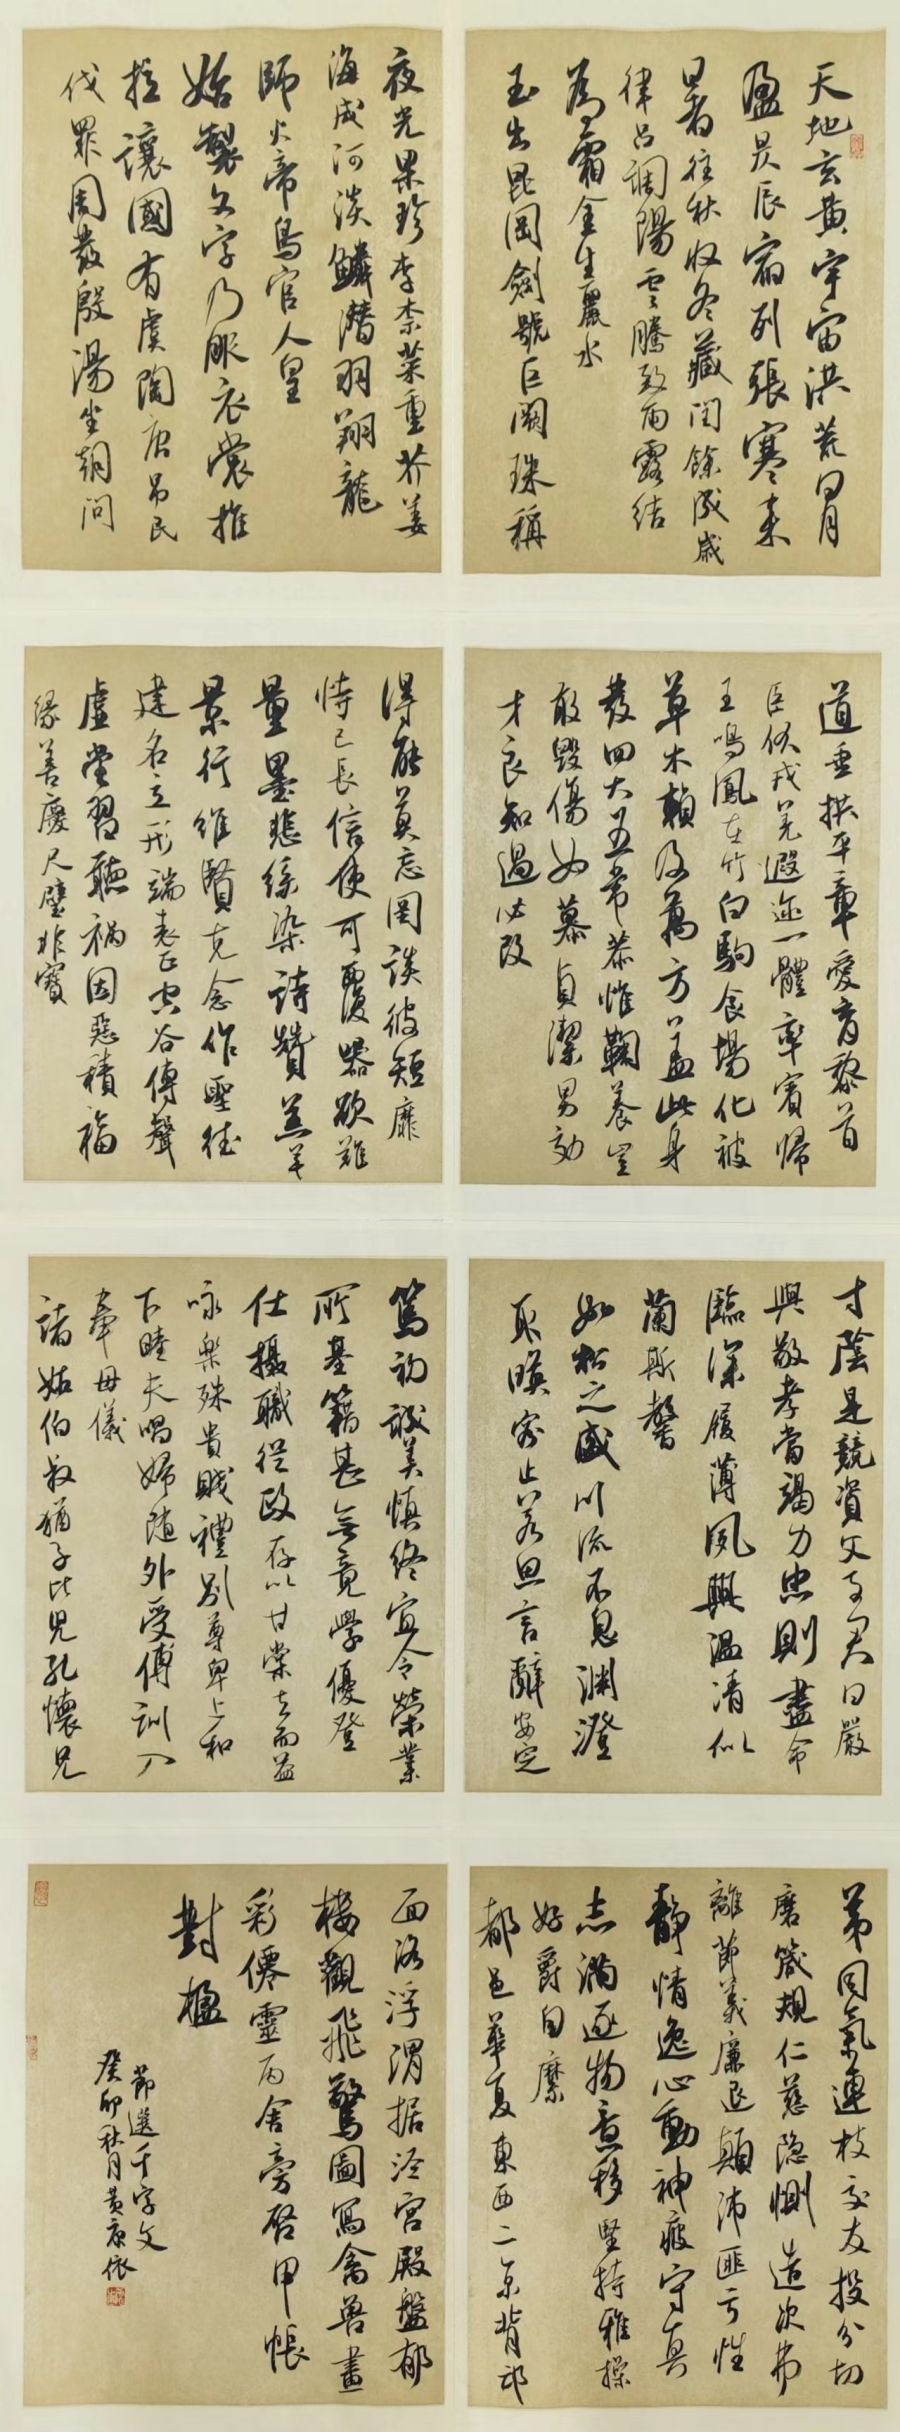 天地玄黄宇宙洪荒日月
盈昃辰宿列張寒来
暑往秋收冬藏閏餘成歲
律呂調陽雲騰致雨露結
為霜金生麗水
玉出崑岡劍號巨闕珠稱
夜光果珍李柰菜重芥姜
海咸河淡鱗潛羽翔龍
師火帝鳥官人皇
始製文字乃服衣裳推
位讓國有虞陶唐吊民
伐罪周發殷湯坐朝問
道垂拱平章愛育黎首
臣伏戎羌遐迩一體率賓歸
王鳴鳳在竹白駒食場化被
草木賴及萬方蓋此身
發四大五常恭惟鞠養豈
敢毀傷女慕貞潔男効
才良知過必改
得能莫忘罔談彼短靡
恃己長信使可覆器欲難
量墨悲絲染詩贊羔羊
景行維賢克念作聖德
建名立形端表正空谷傳聲
虛堂習聽禍因惡積福
緣善慶尺璧非寶
寸陰是競資父事君曰嚴
與敬孝當竭力忠則盡命
臨深履薄夙興溫清似
蘭斯馨
如松之盛川流不息淵澄
取暎容止若思言辭安定
篤初誠美慎終宜令榮業
所基籍甚無竟學優登
仕攝職從政存以甘棠去而益
咏樂殊貴賤禮別尊卑上和
下睦夫唱婦隨外受傅訓入
奉母儀
諸姑伯叔猶子比兒孔懷兄
弟同氣連枝交友投分切
磨箴規仁慈隐惻造次弗
離節義廉退顛沛匪虧性
靜情逸心動神疲守真
志滿逐物意移堅持雅操
好爵自縻
都邑華夏東西二京背邙
面洛浮渭据泾宮殿盤郁
樓觀飛驚圖寫禽獸畫
彩僊靈丙舍旁啓甲帳
對楹
節選千字文
癸卯秋月黄康依